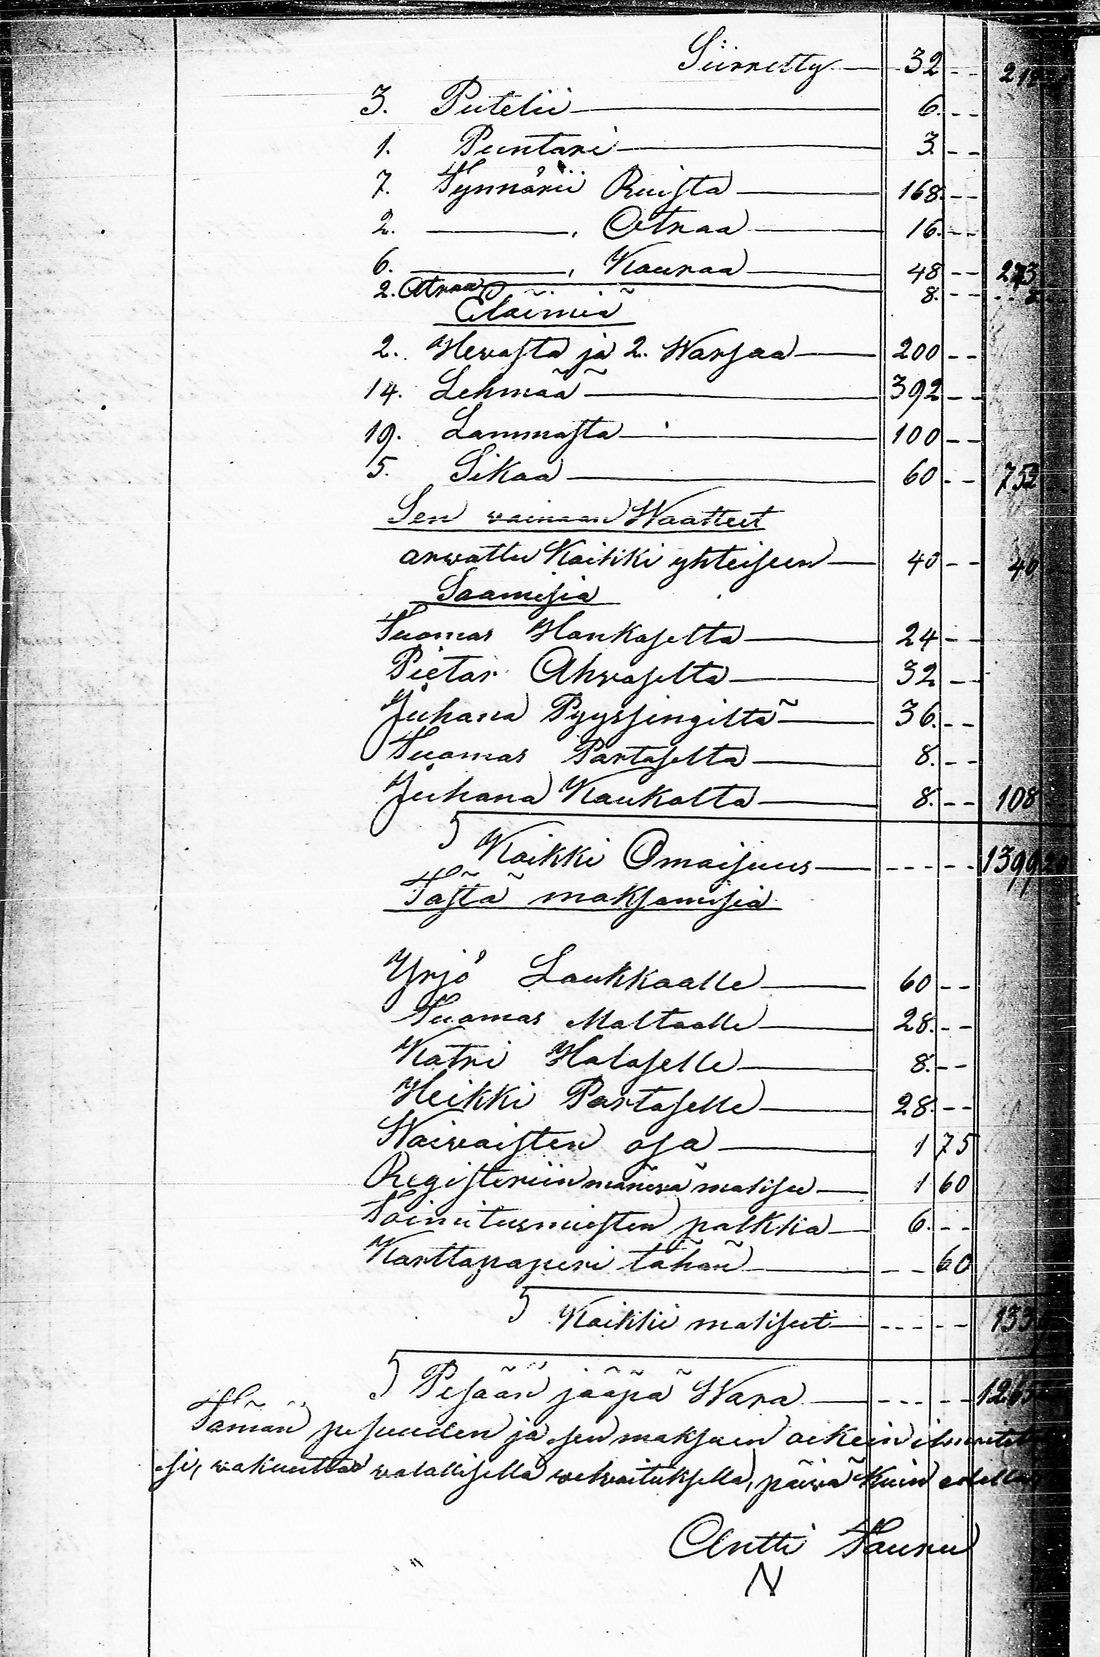 Siirretty 32 - -
3. Putelii 6. - -
1. Puntari 3 - -
7. Tynnörii Ruista 168 - -
2. ———, Otraa 16. - -
6. ———, Kauraa 48 - - 273
2. Otraa 8. - -
Eläimiä
2. Hevosta ja 2. Warsaa 200 - -
14. Lehmää 392 - -
19. Lammasta 100 - -
5. Sikaa 60 - - 752
Sen vainaan Waatteet
arwattu Kaikki yhteiseen 40 - - 40
Saamisia
Tuomas Honkaselta 24 - -
Pietar Ahvaselta 32 - -
Juhana Pyyssingiltä 36. - -
Tuomas Partaselta 8. - -
Juhana Kaukolta 8. - - 108
Kaikki Omaisuus - - - - 1399
Tästä maksamisia
Yrjö Laukkaalle 60 - -
Tuomas Maltaalle 28. - -
Katri Halaselle 8. - -
Heikki Partaselle 28. - -
Waivaisten osa 1 75
Registeriin maksu 1 60
Toimitusmiesten palkka 6. - -
Karttapaperi tähän - - 60
Kaikki maksut - - - - 133
Pesään jääpä Wara - - - -
Tämän pesuuden ja sen maksuen oikein
si, vakuuttaa valallisella velvoituksella, päivä Kuin
Antti Tauru
N